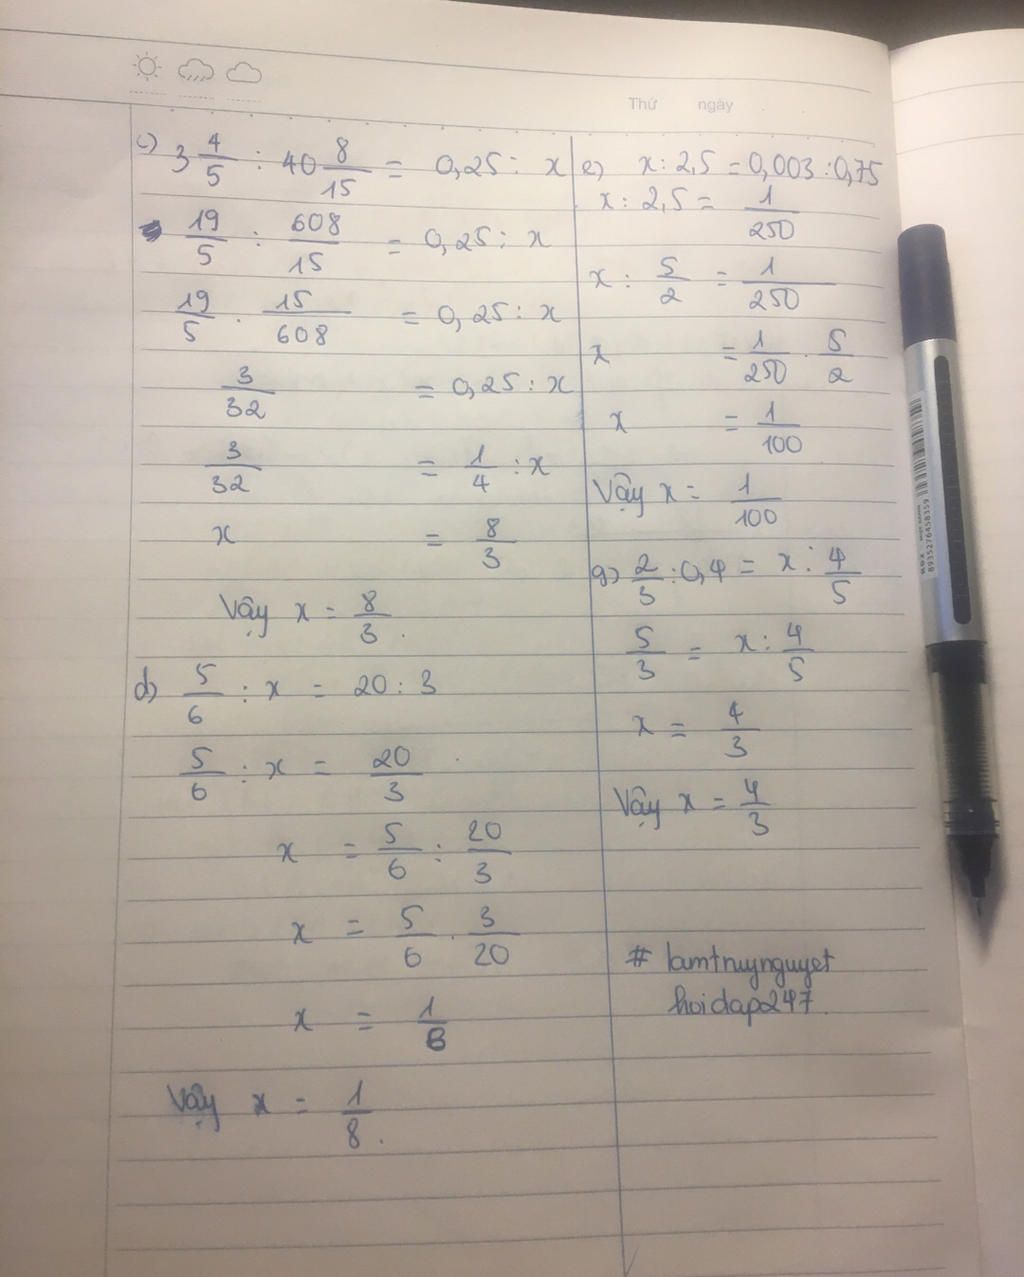 Thứ ngày
c) 3 4/5 : 40 8/15 = 0,25 : x
19/5 : 608/15 = 0,25 : x
19/5 . 15/608 = 0,25 : x
3/32 = 0,25 : x
3/32 = 1/4 : x
x = 8/3
Vậy x = 8/3.
d) 5/6 : x = 20 : 3
5/6 : x = 20/3
x = 5/6 : 20/3
x = 5/6 . 3/20
x = 1/8
Vậy x = 1/8.
e) x : 2,5 = 0,003 : 0,75
x : 2,5 = 1/250
x : 5/2 = 1/250
x = 1/250 . 5/2
x = 1/100
Vậy x = 1/100
g) 2/3 : 0,4 = x : 4/5
5/3 = x : 4/5
x = 4/3
Vậy x = 4/3
# lamtruynguyet
hoidap247.
8935276458359